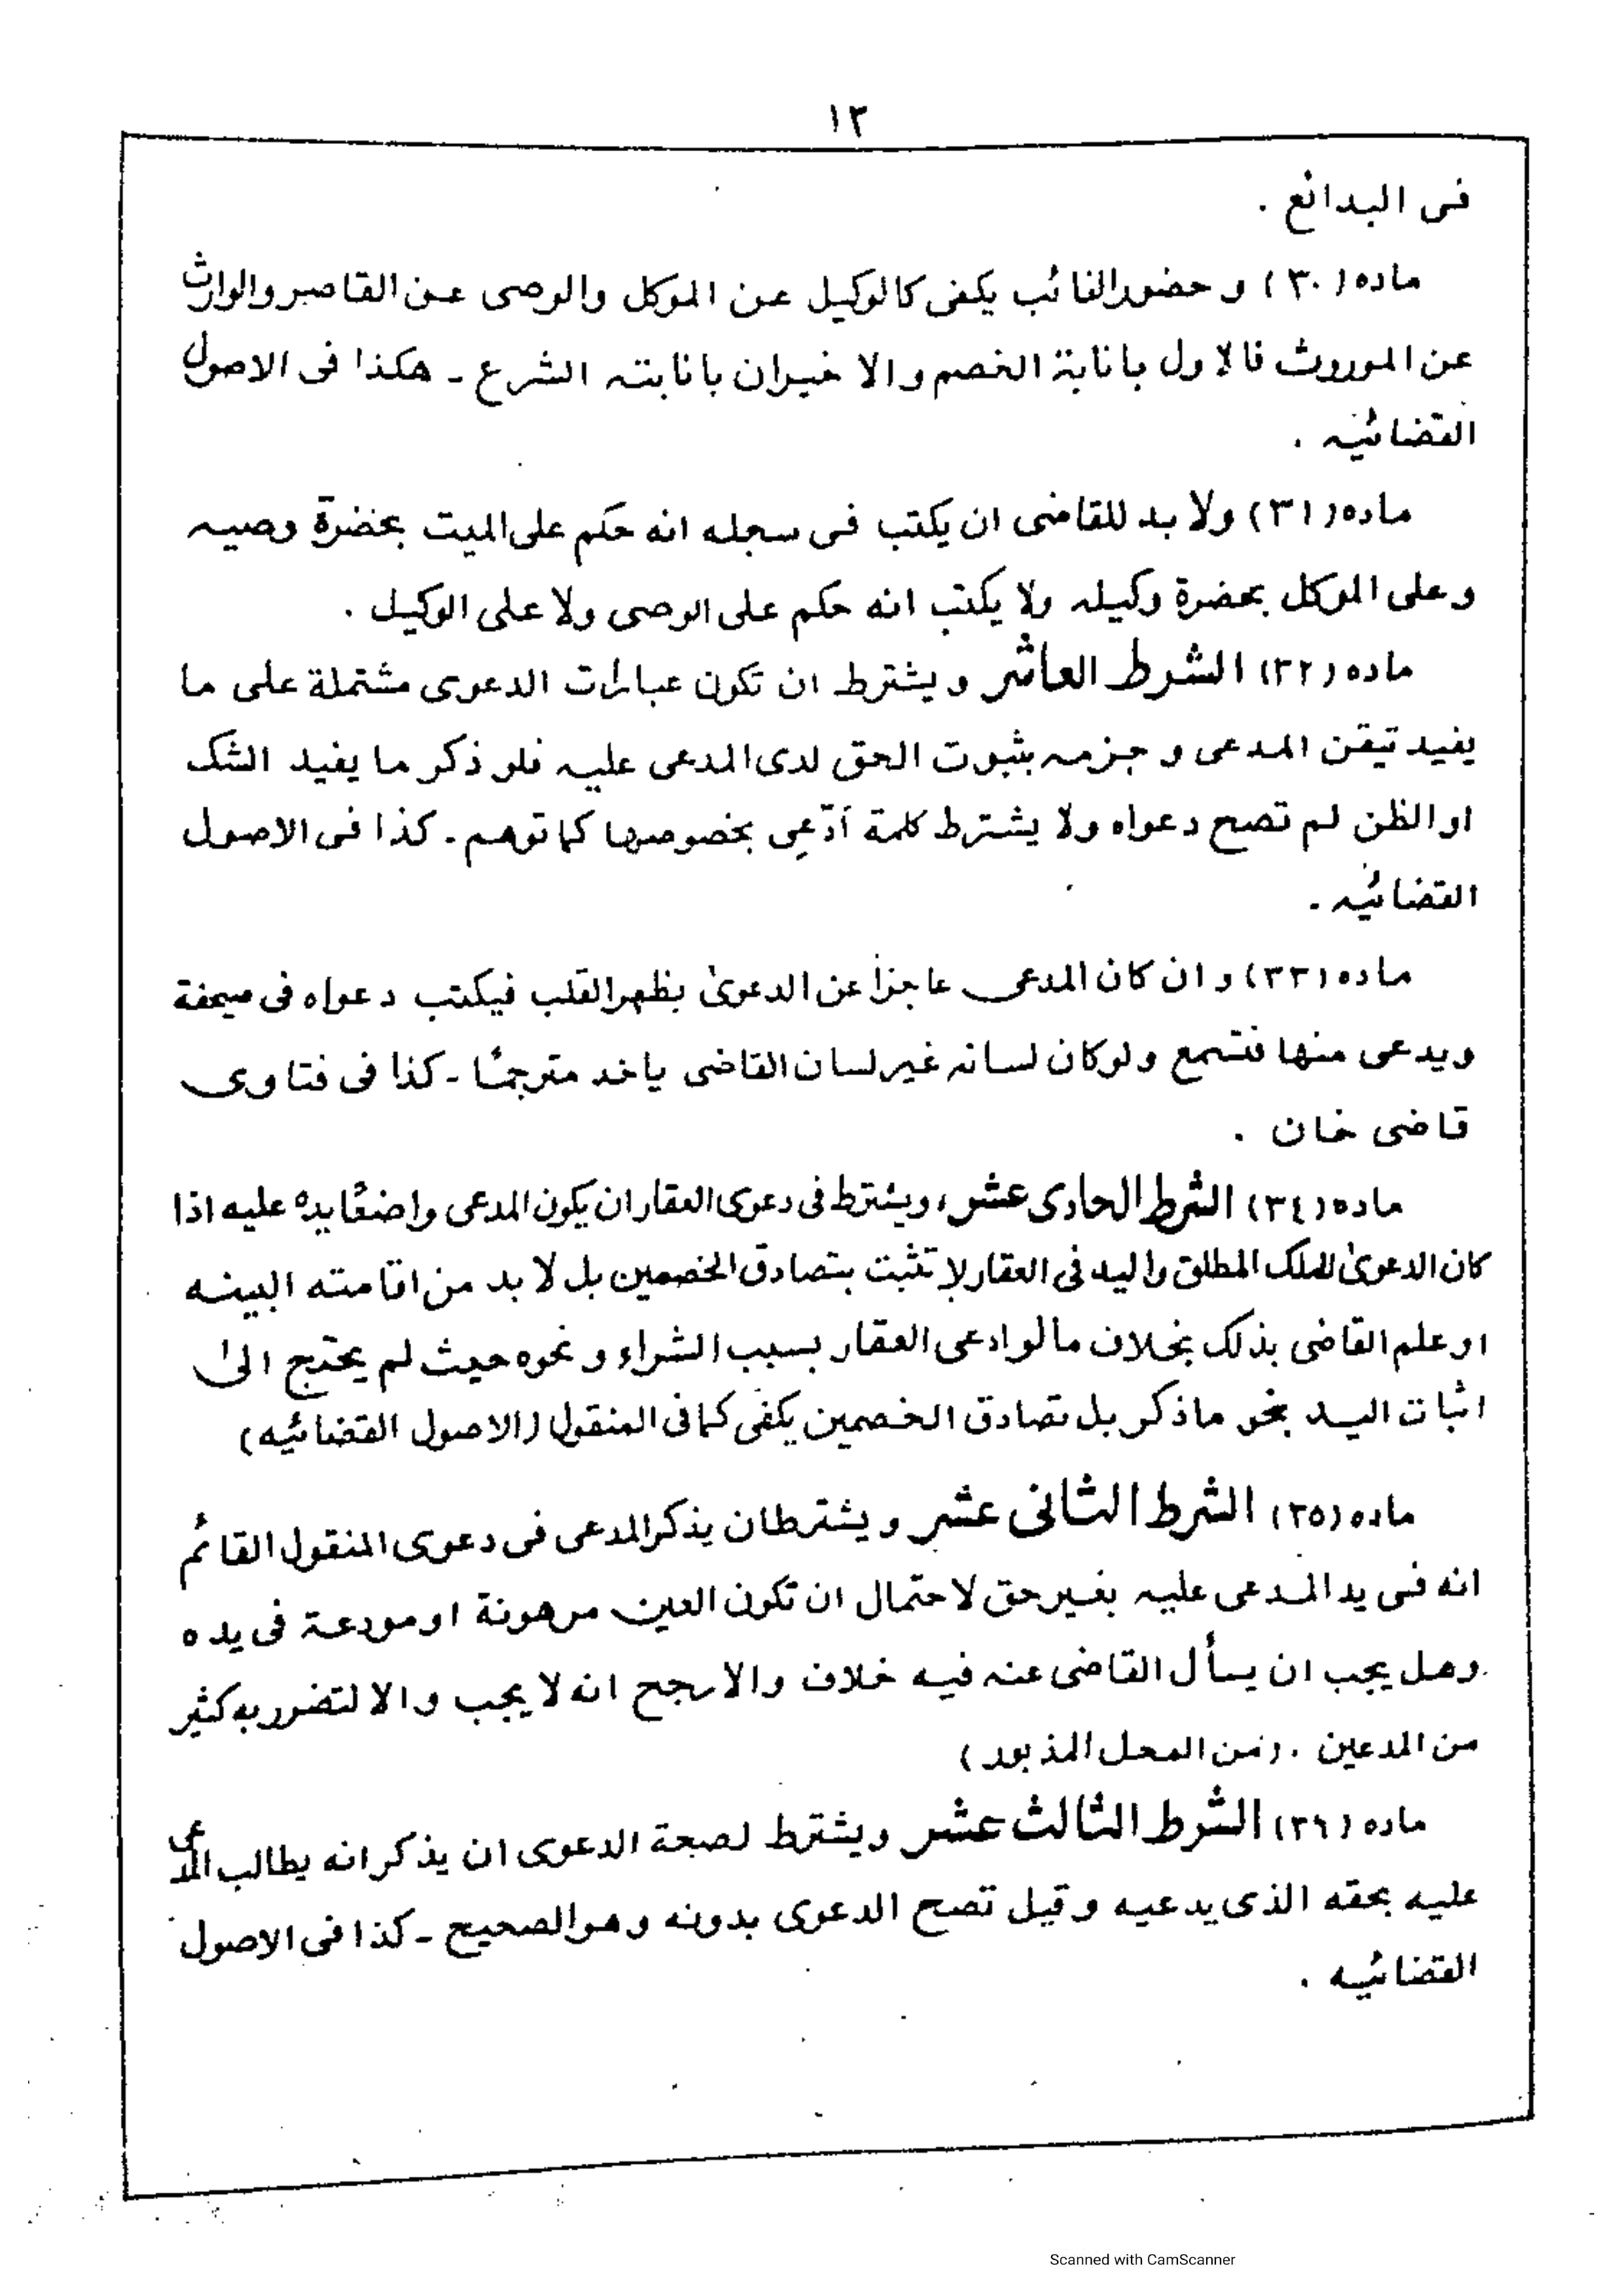 ١٣
فى البدائع .
ماده (٣٠) و حضورالنائب يكفى كالوكيل عن الموكل والوصى عن القاصر والوارث
عن الموروث فالاول بانابة الخصم والاخيران بانابته الشرع ـ هكذا فى الاصول
القضائيه .
ماده (٣١) ولا بد للقاضى ان يكتب فى سجله انه حكم على الميت بحضرة وصيه
وعلى الموكل بحضرة وكيله ولا يكتب انه حكم على الوصى ولا على الوكيل .
ماده (٣٢) الشرط العاشر و يشترط ان تكون عبارات الدعوى مشتملة على ما
يفيد تيقن المدعى و جزمه بثبوت الحق لدى المدعى عليه فلو ذكر ما يفيد الشك
او الظن لم تصح دعواه ولا يشترط كلمة أدّعِى بخصوصها كما توهم ـ كذا فى الاصول
القضائيه ـ
ماده (٣٣) و ان كان المدعى عاجزاً عن الدعوىٰ بظهر القلب فيكتب دعواه فى صحيفة
ويدعى منها فتسمع ولوكان لسانه غير لسان القاضى ياخد مترجمًا ـ كذا فى فتاوى
قاضى خان .
ماده (٣٤) الشرط الحادى عشر، ويشترط فى دعوى العقار ان يكون المدعى واضعًا يده عليه اذا
كان الدعوىٰ للملك المطلق واليد فى العقار لا تثبت بتصادق الخصمين بل لا بد من اقامته البينه
او علم القاضى بذلك بخلاف ما لو ادعى العقار بسبب الشراء و نحوه حيث لم يحتج الىٰ
اثبات اليد بنحو ماذكر بل تصادق الخصمين يكفى كما فى المنقول (الاصول القضائيه)
ماده (٣٥) الشرط الثانى عشر و يشترط ان يذكر المدعى فى دعوى المنقول القائم
انه فى يد المدعى عليه بغير حق لاحتمال ان تكون العين مرهونة او مودعة فى يده
وهل يجب ان يسأل القاضى عنه فيه خلاف والارجح انه لا يجب والا لتضرر به كثير
من المدعين . (من المحل المذبور)
ماده (٣٦) الشرط الثالث عشر ويشترط لصحة الدعوى ان يذكر انه يطالب المدعى
عليه بحقه الذى يدعيه وقيل تصح الدعوى بدونه وهو الصحيح ـ كذا فى الاصول
القضائيه .
Scanned with CamScanner